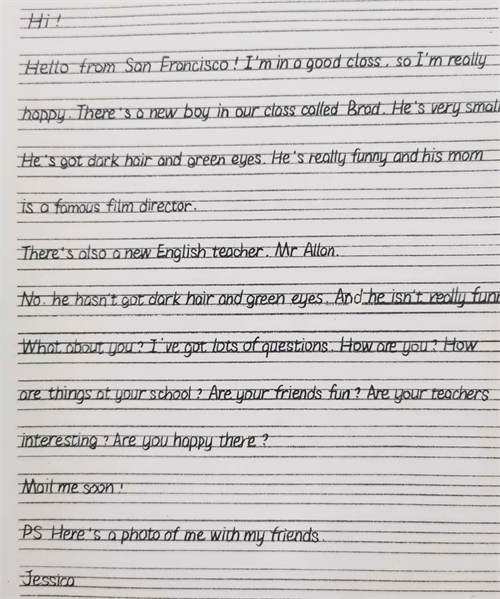 Hi!
Hello from San Francisco! I'm in a good class. so I'm really
happy. There's a new boy in our class called Brad. He's very small
He's got dark hair and green eyes. He's really funny and his mom
is a famous film director.
There's also a new English teacher. Mr Allan.
No. he hasn't got dark hair and green eyes. And he isn't really funn
What about you? I've got lots of questions. How are you? How
are things at your school? Are your friends fun? Are your teachers
interesting? Are you happy there?
Mail me soon!
PS Here's a photo of me with my friends.
Jessica